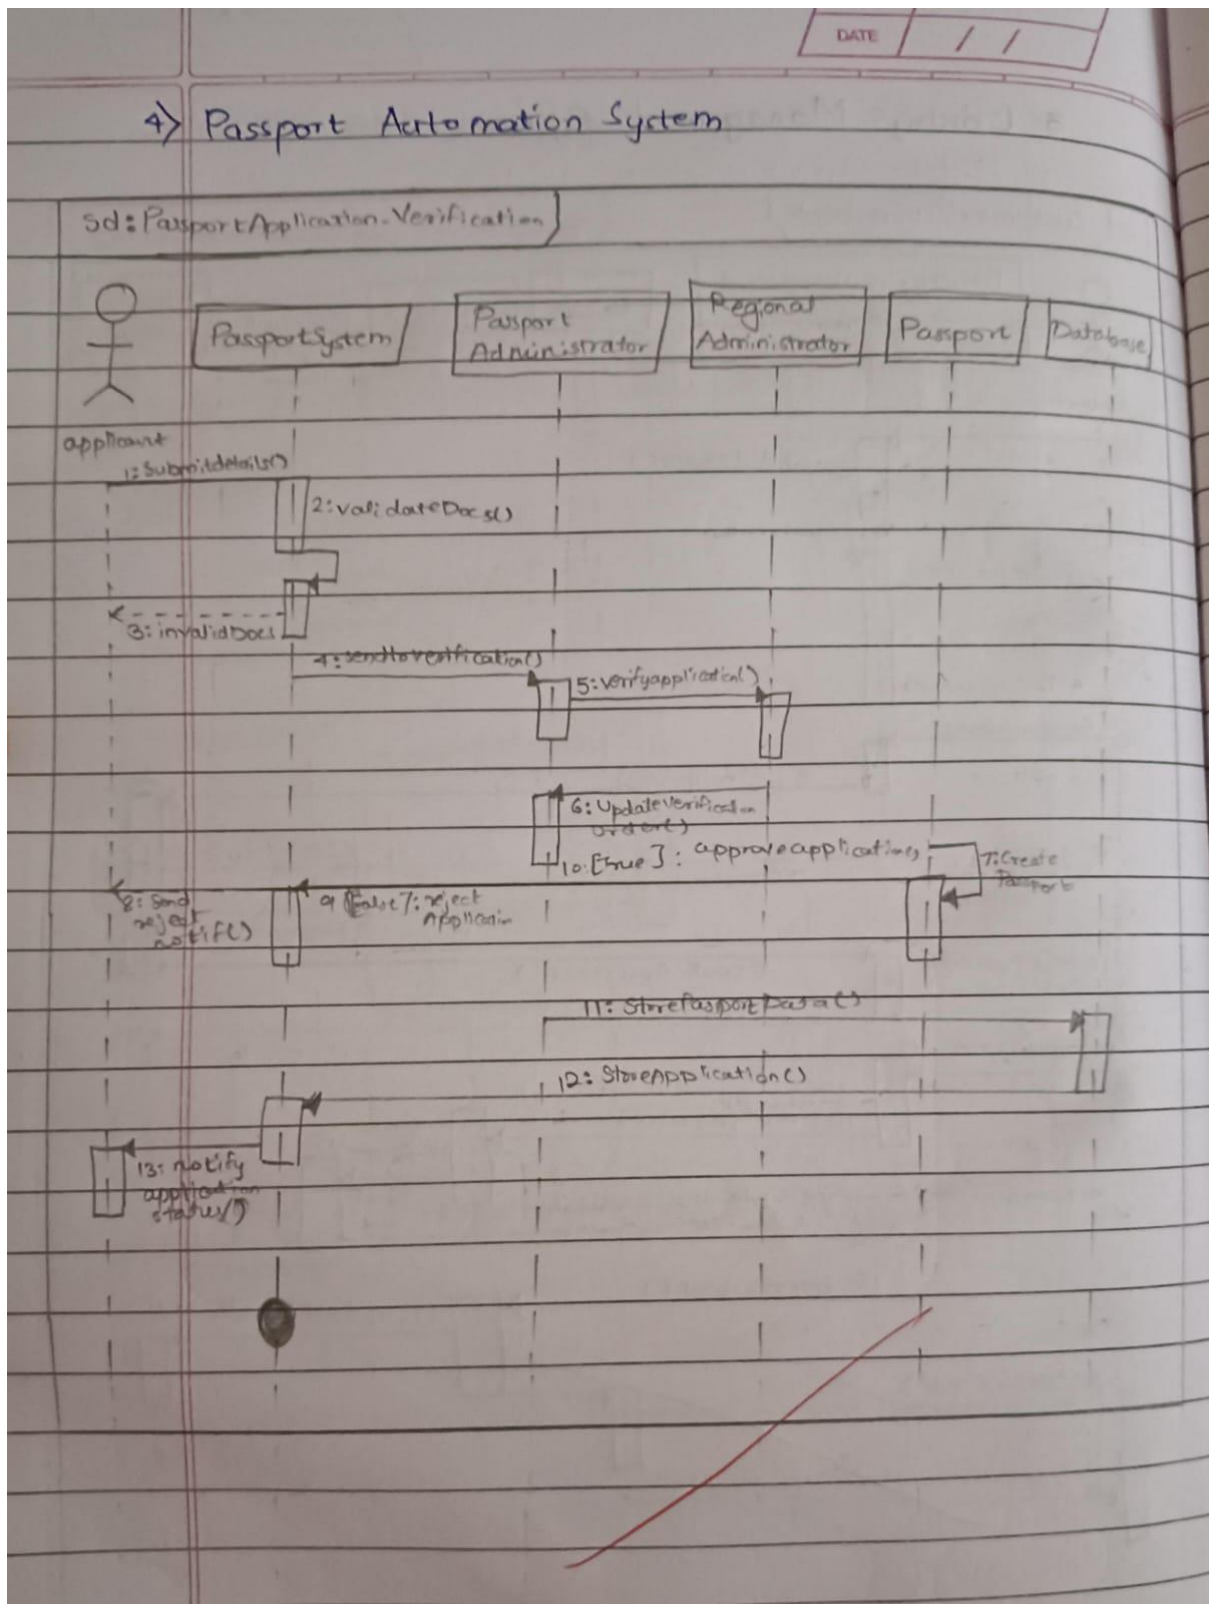 DATE / /
4) Passport Automation System
sd: PassportApplication-Verification
PassportSystem
Passport
Administrator
Regional
Administrator
Passport
Database
applicant
1: Submitdetails()
2: validateDocs()
3: invalidDocs
4: sendtoverification()
5: verifyapplication()
6: UpdateVerification
order()
10: [true]: approveapplication()
7: Create
Passport
8: Send
reject
notif()
9 [False]: reject
11: StorePassportData()
12: StoreApplication()
13: notify
application
status()